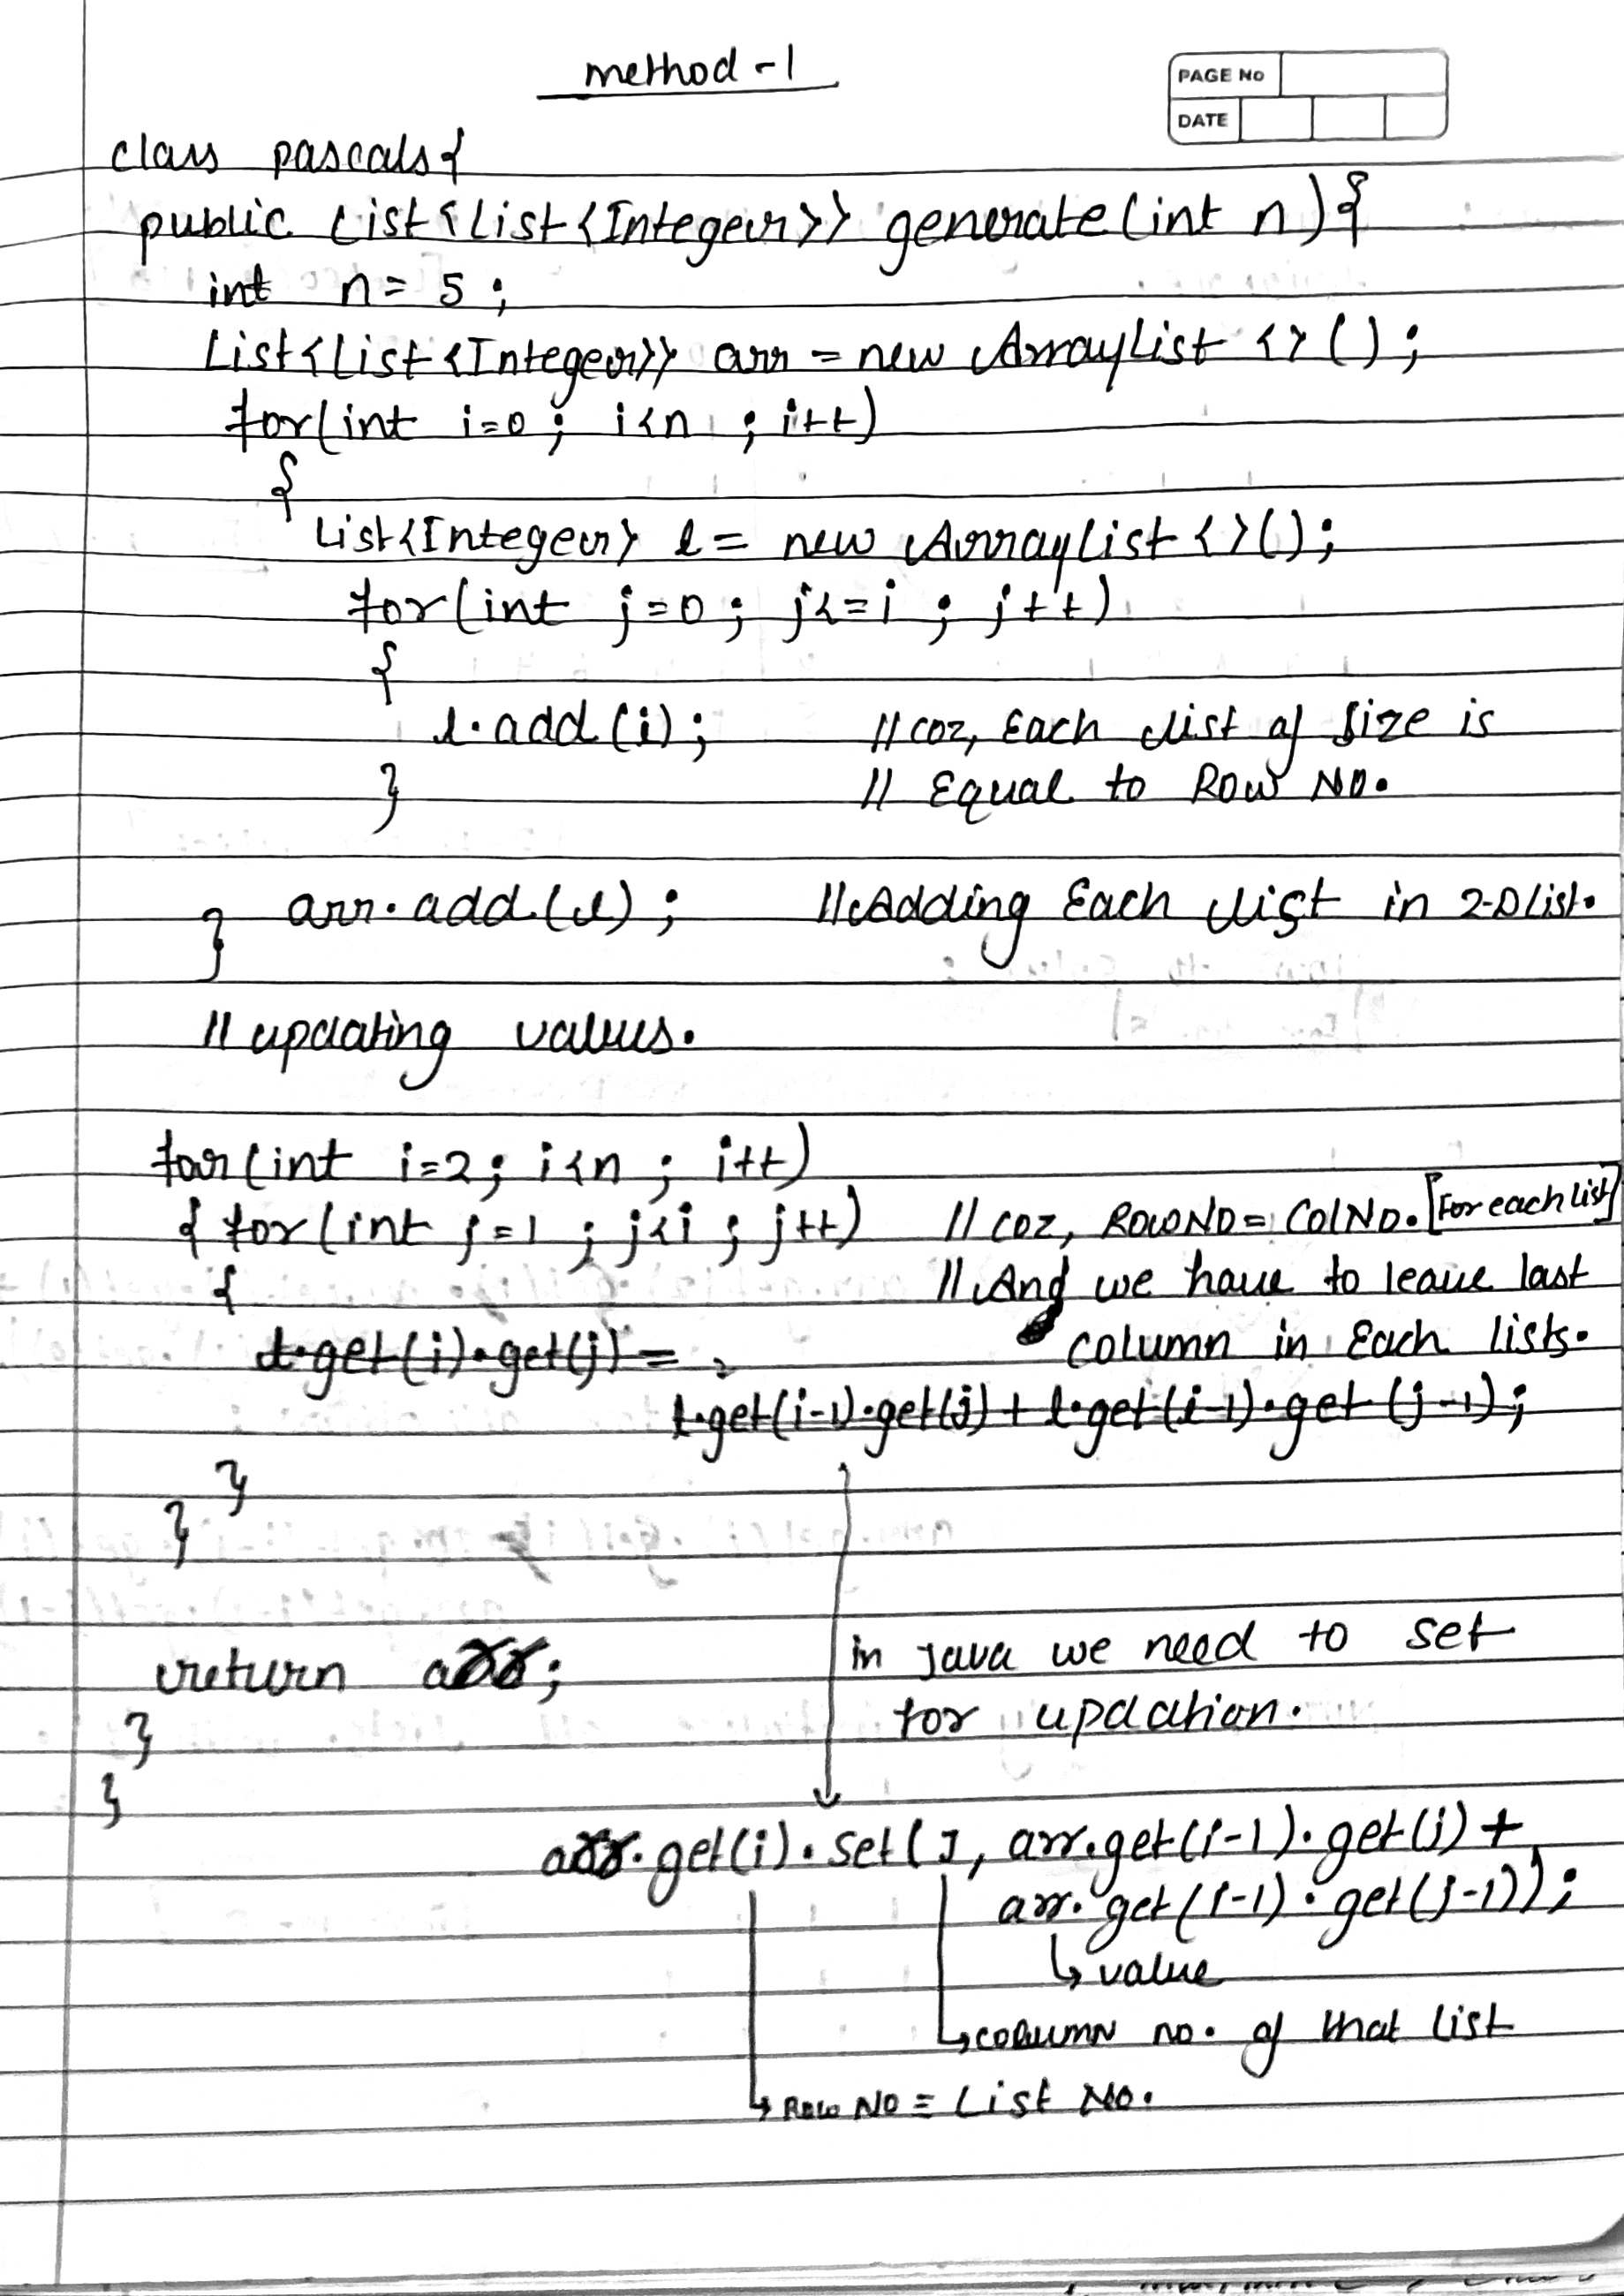 method-1
PAGE No
DATE
class pascals{
public List<List<Integer>> generate(int n){
int n = 5;
List<List<Integer>> arr = new ArrayList <>();
for(int i=0; i<n ; i++)
{
List<Integer> l = new ArrayList<>();
for(int j=0; j<=i ; j++)
{
l.add(i); //coz, Each list of size is
} // Equal to Row NO.
arr.add(l); //Adding Each list in 2-D list.
}
//updating values.
for(int i=2; i<n ; i++)
{ for(int j=1 ; j<i ; j++) // coz, RowNO = ColNO. [For each list]
{ // And we have to leave last
l.get(i).get(j) = column in Each lists.
l.get(i-1).get(j) + l.get(i-1).get(j-1);
}
}
in java we need to set
return arr;
for updation.
}
}
arr.get(i).set(J, arr.get(i-1).get(j) +
arr.get(i-1).get(j-1));
↳ value
↳ column no. of that list
↳ Row NO = List NO.